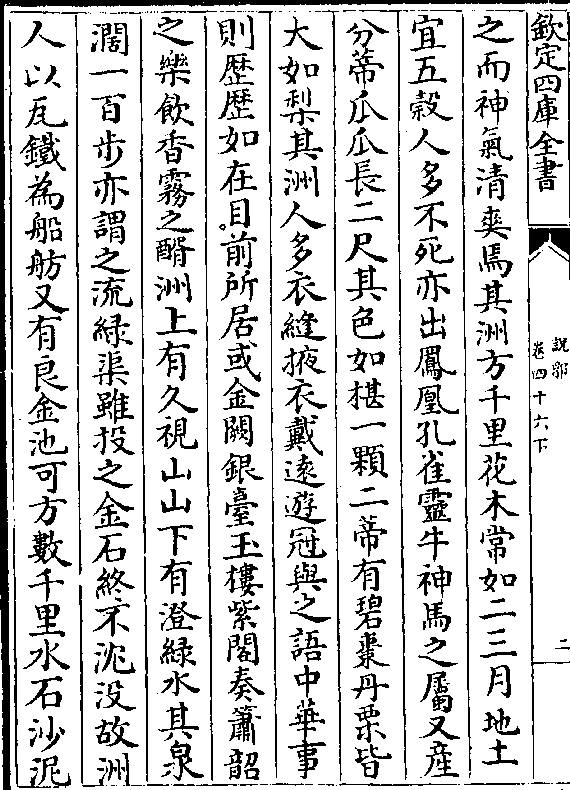 欽定四庫全書
說郛
卷四十六下
二
之而神氣清爽焉其洲方千里花木常如二三月地土
宜五穀人多不死亦出鳳凰孔雀靈牛神馬之屬又産
分蔕瓜瓜長二尺其色如椹一顆二蔕有碧棗丹栗皆
大如梨其洲人多衣縫掖衣戴遠遊冠與之語中華事
則歴歴如在目前所居或金闕銀臺玉樓紫閣奏簫韶
之樂飲香霧之醑洲上有久視山山下有澄緑水其泉
濶一百步亦謂之流緑渠雖投之金石終不沈没故洲
人以瓦鐵為船舫又有良金池可方數千里水石沙泥